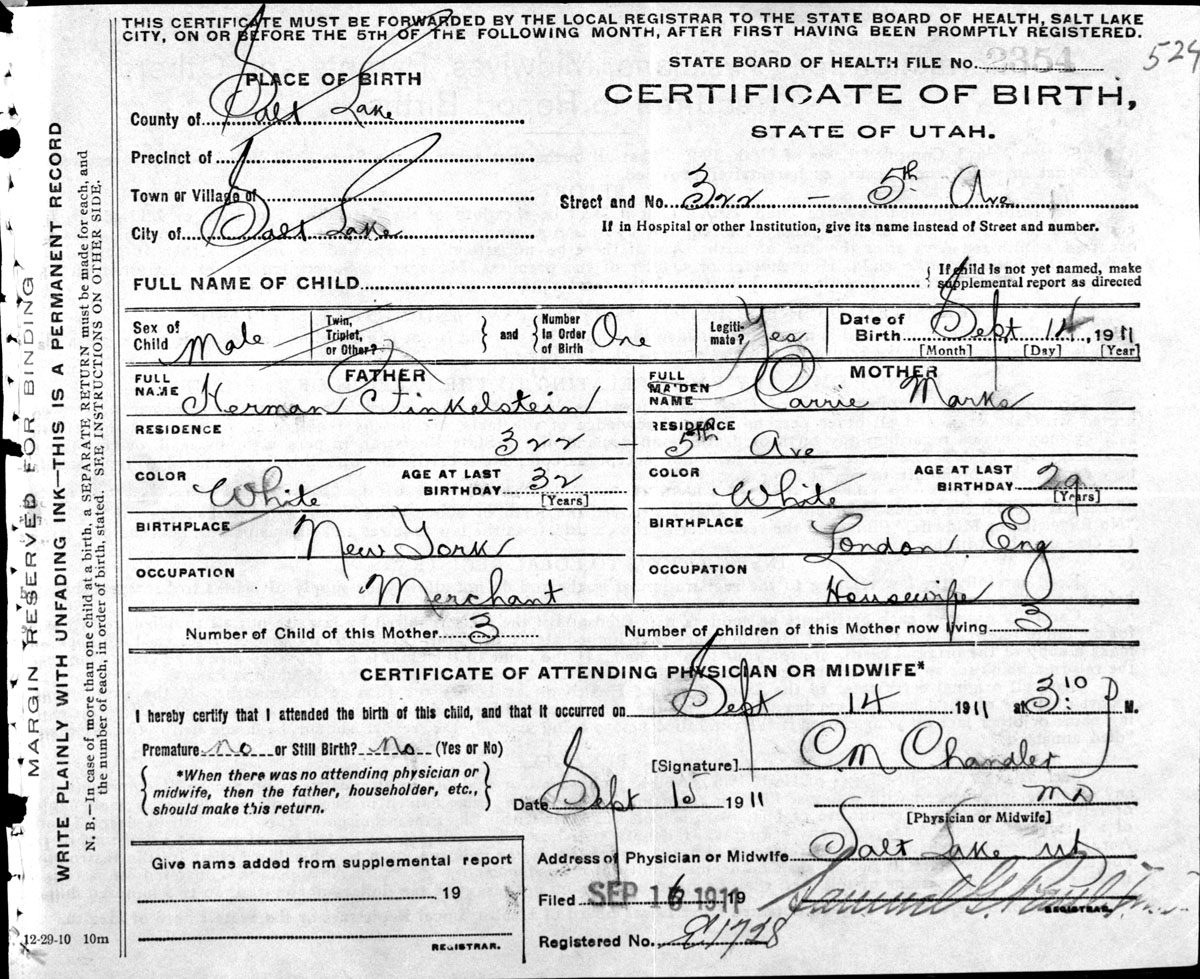 THIS CERTIFICATE MUST BE FORWARDED BY THE LOCAL REGISTRAR TO THE STATE BOARD OF HEALTH, SALT LAKE
CITY, ON OR BEFORE THE 5TH OF THE FOLLOWING MONTH, AFTER FIRST HAVING BEEN PROMPTLY REGISTERED.
STATE BOARD OF HEALTH FILE No. 2354
524
PLACE OF BIRTH
CERTIFICATE OF BIRTH,
STATE OF UTAH.
County of Salt Lake
Precinct of
Town or Village of
Street and No. 322 - 5th Ave
City of Salt Lake
If in Hospital or other Institution, give its name instead of Street and number.
FULL NAME OF CHILD
{ If child is not yet named, make
supplemental report as directed
Sex of Child Male
Twin, Triplet, or Other?
} and { Number in Order of Birth One
Legitimate? Yes
Date of Birth Sept 14, 1911
[Month] [Day] [Year]
FATHER
FULL NAME Herman Finkelstein
MOTHER
FULL MAIDEN NAME Carrie Marks
RESIDENCE 322
RESIDENCE 5th Ave
COLOR White
AGE AT LAST BIRTHDAY 32 [Years]
COLOR White
AGE AT LAST BIRTHDAY 29 [Years]
BIRTHPLACE New York
BIRTHPLACE London, Eng
OCCUPATION Merchant
OCCUPATION Housewife
Number of Child of this Mother 3
Number of children of this Mother now living 3
CERTIFICATE OF ATTENDING PHYSICIAN OR MIDWIFE*
I hereby certify that I attended the birth of this child, and that it occurred on Sept 14 1911 at 3:10 P M.
Premature no or Still Birth? No (Yes or No)
{ *When there was no attending physician or
midwife, then the father, householder, etc.,
should make this return. }
[Signature] CM Chandler
Date Sept 15 1911
MD
[Physician or Midwife]
Give name added from supplemental report
19
REGISTRAR.
Address of Physician or Midwife Salt Lake Ut
Filed SEP 16 1911 19
REGISTRAR.
Registered No. E1728
12-29-10 10m
MARGIN RESERVED FOR BINDING
WRITE PLAINLY WITH UNFADING INK—THIS IS A PERMANENT RECORD
N. B.—In case of more than one child at a birth, a SEPARATE RETURN must be made for each, and
the number of each, in order of birth, stated. SEE INSTRUCTIONS ON OTHER SIDE.